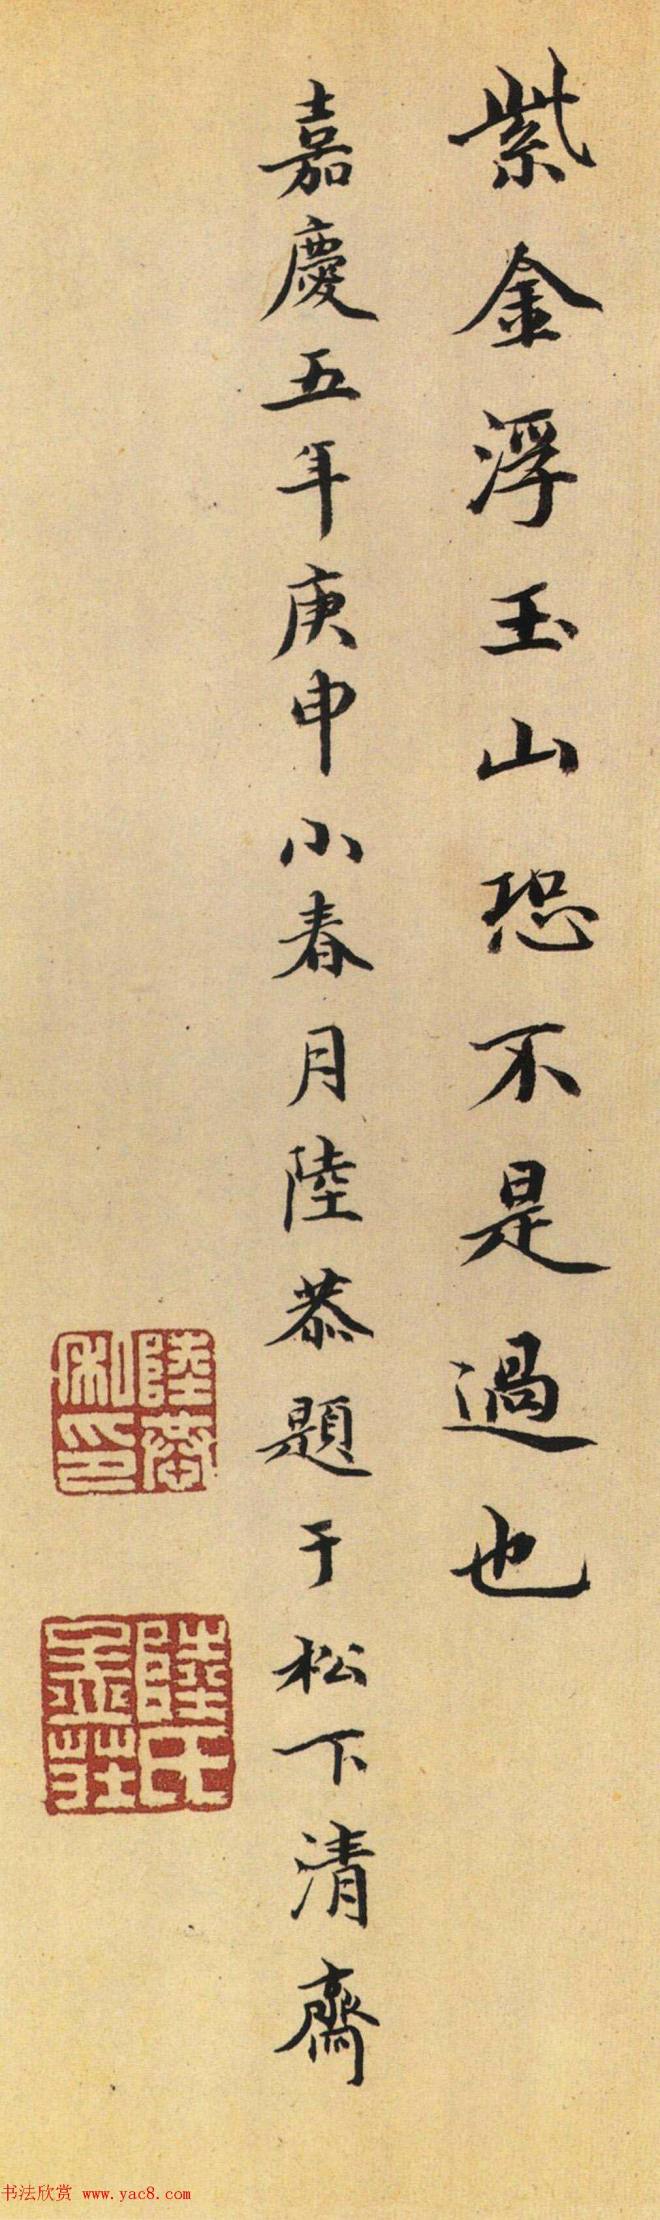 紫金浮玉山恐不是過也
嘉慶五年庚申小春月陸恭題于松下清齋
陸恭私印
陸氏孟莊
书法欣赏 www.yac8.com